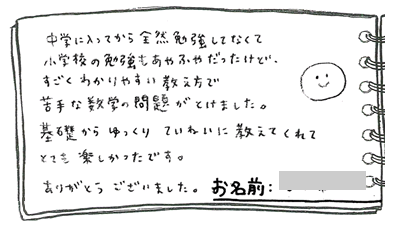 中学に入ってから全然勉強してなくて
小学校の勉強もあやふやだったけど、
すごくわかりやすい教え方で
苦手な数学の問題がとけました。
基礎からゆっくりていねいに教えてくれて
とても楽しかったです。
ありがとうございました。 お名前: